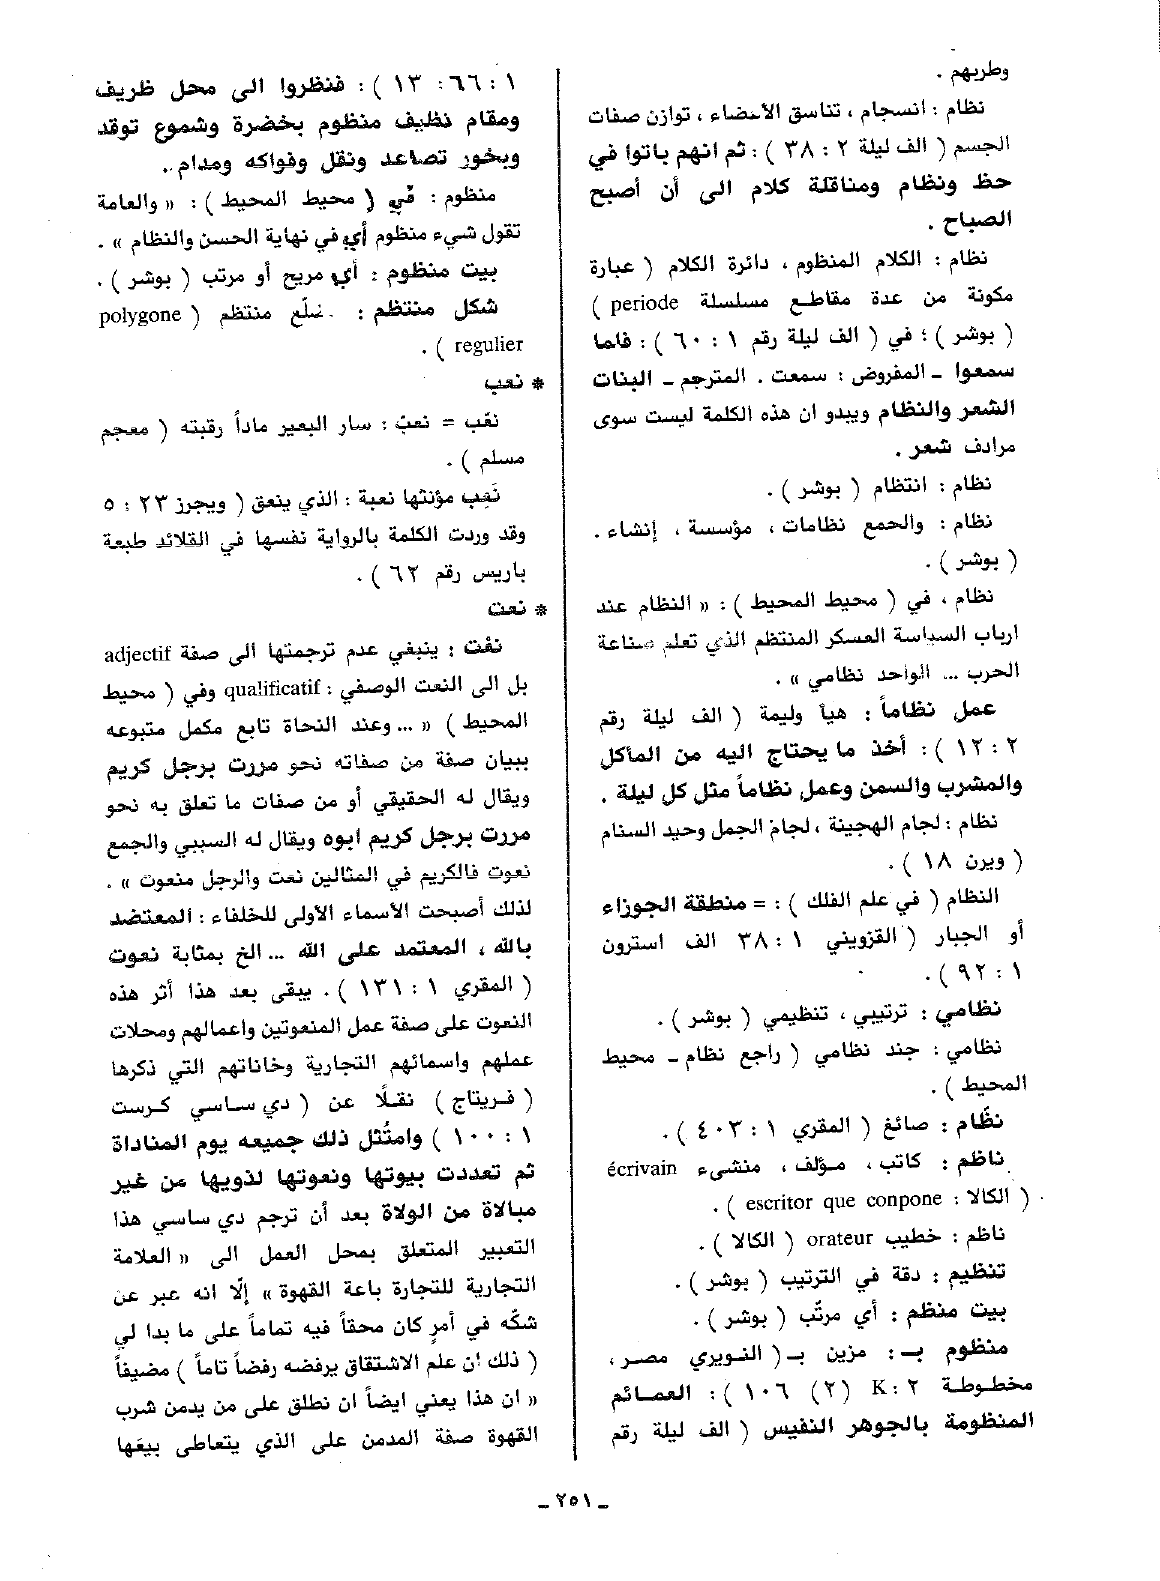 وطربهم .
نظام : انسجام ، تناسق الأعضاء ، توازن صفات
الجسم ( الف ليلة ٢ : ٣٨ ) : ثم انهم باتوا في
حظ ونظام ومناقلة كلام الى أن أصبح
الصباح .
نظام : الكلام المنظوم ، دائرة الكلام ( عبارة
مكونة من عدة مقاطع مسلسلة periode )
( بوشر ) ؛ في ( الف ليلة رقم ١ : ٦٠ ) : فلما
سمعوا ـ المفروض : سمعت . المترجم ـ البنات
الشعر والنظام ويبدو ان هذه الكلمة ليست سوى
مرادف شعر .
نظام : انتظام ( بوشر ) .
نظام : والجمع نظامات ، مؤسسة ، إنشاء .
( بوشر ) .
نظام ، في ( محيط المحيط ) : « النظام عند
ارباب السياسة العسكر المنتظم الذي تعلم صناعة
الحرب ... الواحد نظامي » .
عمل نظاماً : هيأ وليمة ( الف ليلة رقم
٢ : ١٢ ) : أخذ ما يحتاج اليه من المأكل
والمشرب والسمن وعمل نظاماً مثل كل ليلة .
نظام : لجام الهجينة ، لجام الجمل وحيد السنام
( ويرن ١٨ ) .
النظام ( في علم الفلك ) : = منطقة الجوزاء
أو الجبار ( القزويني ١ : ٣٨ الف استرون
١ : ٩٢ ) .
نظامي : ترتيبي ، تنظيمي ( بوشر ) .
نظامي : جند نظامي ( راجع نظام ـ محيط
المحيط ) .
نظّام : صائغ ( المقري ١ : ٤٠٣ ) .
ناظم : كاتب ، مؤلف ، منشىء écrivain
( الكالا : escritor que conpone ) .
ناظم : خطيب orateur ( الكالا ) .
تنظيم : دقة في الترتيب ( بوشر ) .
بيت منظم : أي مرتّب ( بوشر ) .
منظوم بـ : مزين بـ ( النويري مصر ،
مخطوطة ٢ : K (٢) ١٠٦ ) : العمائم
المنظومة بالجوهر النفيس ( الف ليلة رقم
١ : ٦٦ : ١٣ ) : فنظروا الى محل ظريف
ومقام نظيف منظوم بخضرة وشموع توقد
وبخور تصاعد ونقل وفواكه ومدام ..
منظوم : في ( محيط المحيط ) : « والعامة
تقول شيء منظوم أي في نهاية الحسن والنظام » .
بيت منظوم : أي مريح أو مرتب ( بوشر ) .
شكل منتظم : ضلّع منتظم ( polygone
regulier ) .
* نعب
نعَب = نعبّ : سار البعير ماداً رقبته ( معجم
مسلم ) .
نَعِب مؤنثها نعبة : الذي ينعق ( ويجرز ٢٣ : ٥
وقد وردت الكلمة بالرواية نفسها في القلائد طبعة
باريس رقم ٦٢ ) .
* نعت
نعْت : ينبغي عدم ترجمتها الى صفة adjectif
بل الى النعت الوصفي : qualificatif وفي ( محيط
المحيط ) « ... وعند النحاة تابع مكمل متبوعه
ببيان صفة من صفاته نحو مررت برجل كريم
ويقال له الحقيقي أو من صفات ما تعلق به نحو
مررت برجل كريم ابوه ويقال له السببي والجمع
نعوت فالكريم في المثالين نعت والرجل منعوت » .
لذلك أصبحت الأسماء الأولى للخلفاء : المعتضد
بالله ، المعتمد على الله ... الخ بمثابة نعوت
( المقري ١ : ١٣١ ) . يبقى بعد هذا أثر هذه
النعوت على صفة عمل المنعوتين واعمالهم ومحلات
عملهم واسمائهم التجارية وخاناتهم التي ذكرها
( فريتاج ) نقلًا عن ( دي ساسي كرست
١ : ١٠٠ ) وامتُثل ذلك جميعه يوم المناداة
ثم تعددت بيوتها ونعوتها لذويها من غير
مبالاة من الولاة بعد أن ترجم دي ساسي هذا
التعبير المتعلق بمحل العمل الى « العلامة
التجارية للتجارة باعة القهوة » إلّا انه عبر عن
شكّه في أمرٍ كان محقاً فيه تماماً على ما بدا لي
( ذلك ان علم الاشتقاق يرفضه رفضاً تاماً ) مضيفاً
« ان هذا يعني ايضاً ان نطلق على من يدمن شرب
القهوة صفة المدمن على الذي يتعاطى بيعَها
ـ ٢٥١ ـ